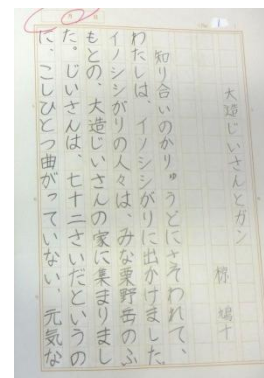 大造じいさんとガン
椋 鳩十
知り合いのかりゅうどにさそわれて、
わたしは、イノシシがりに出かけました。
イノシシがりの人々は、みな栗野岳のふ
もとの、大造じいさんの家に集まりまし
た。じいさんは、七十二さいだというの
に、こしひとつ曲がっていない、元気な